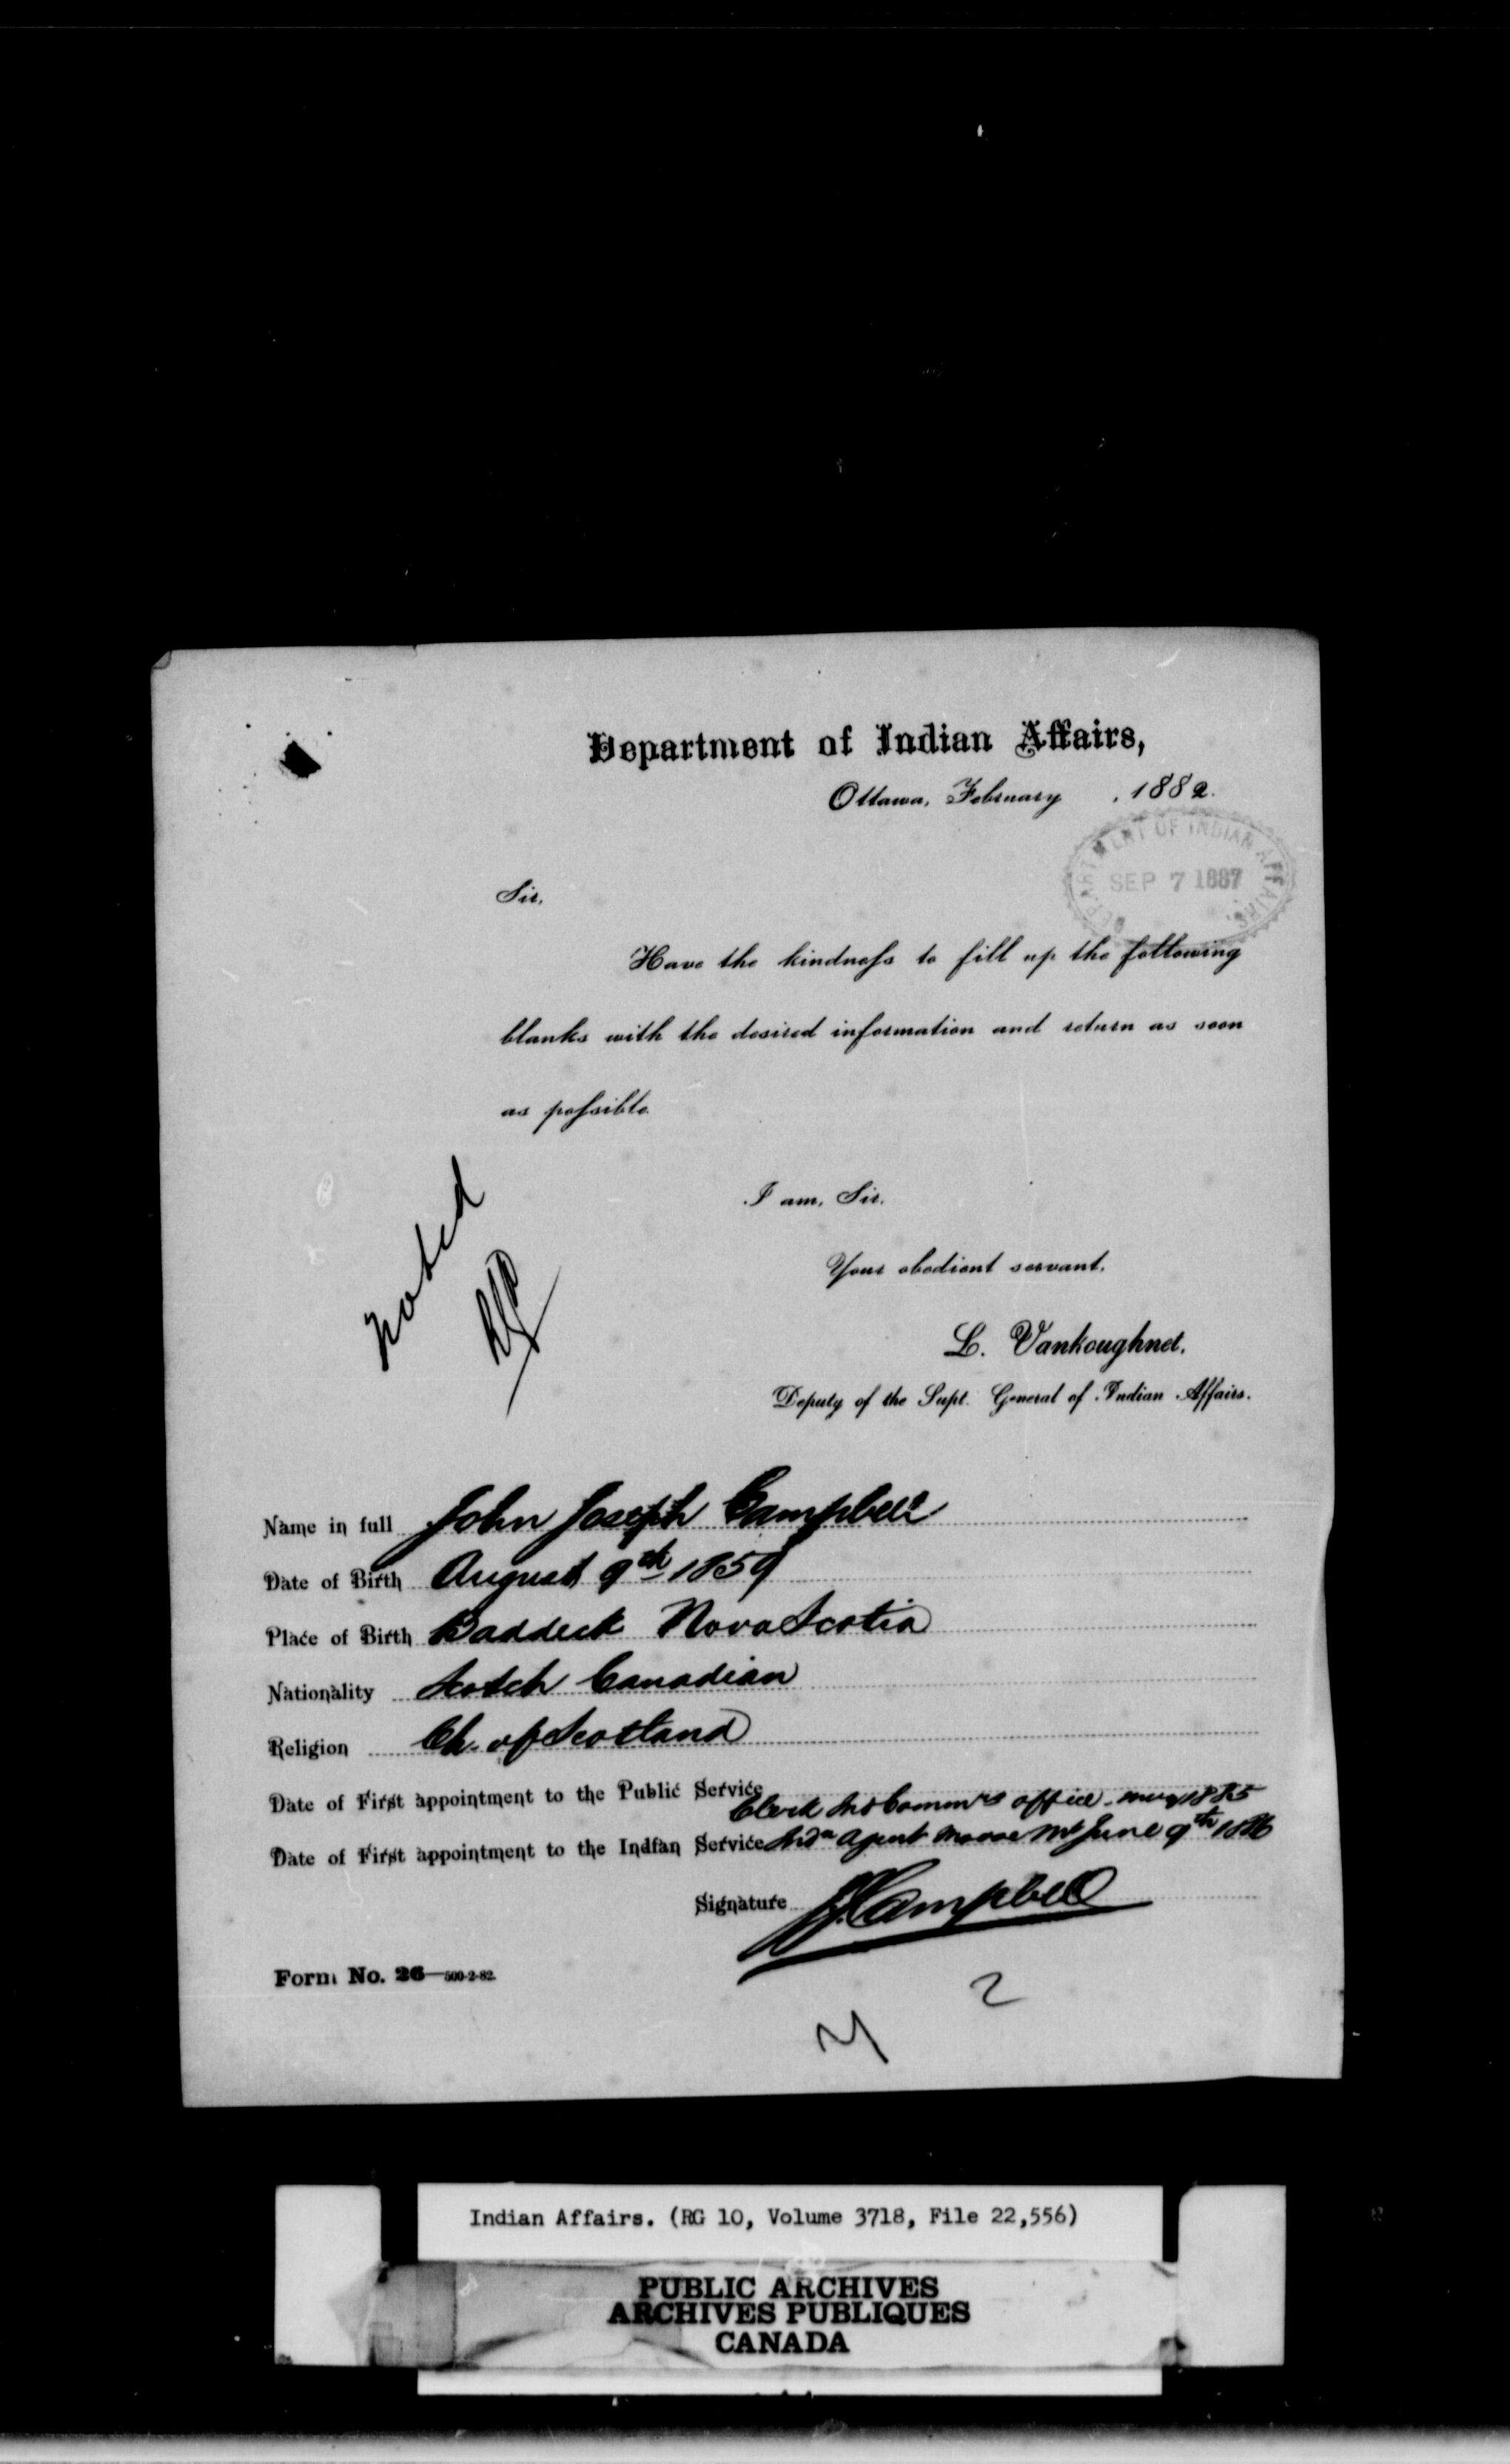 Department of Indian Affairs,
Ottawa, February , 1882.
DEPARTMENT OF INDIAN AFFAIRS.
SEP 7 1887
Sir,
Have the kindness to fill up the following
blanks with the desired information and return as soon
as possible.
I am, Sir,
Your obedient servant,
L. Vankoughnet,
Deputy of the Supt. General of Indian Affairs.
Noted
Name in full John Joseph Campbell
Date of Birth August 9th 1859
Place of Birth Baddeck Nova Scotia
Nationality Scotch Canadian
Religion Ch. of Scotland
Date of First appointment to the Public Service
Clerk Ind Comm'rs office - May 1885
Date of First appointment to the Indian Service Indn Agent Moose Mt June 9th 1886
Signature JJCampbell
Form No. 26—500-2-82.
2
Indian Affairs. (RG 10, Volume 3718, File 22,556)
PUBLIC ARCHIVES
ARCHIVES PUBLIQUES
CANADA